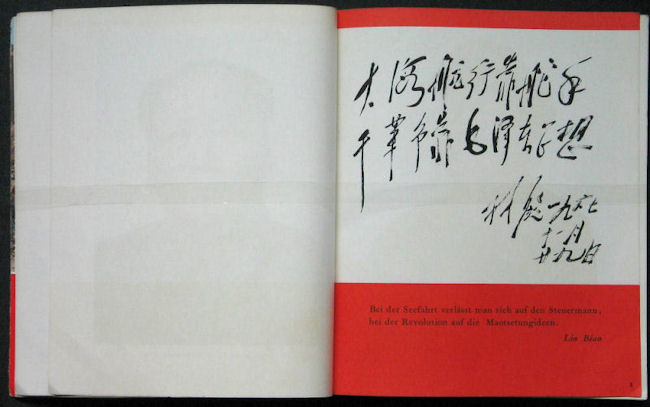 大海航行靠舵手
干革命靠毛泽东思想
林彪 一九六七
十一月
廿九日
Bei der Seefahrt verlässt man sich auf den Steuermann,
bei der Revolution auf die Maotsetungideen.
Lin Biao